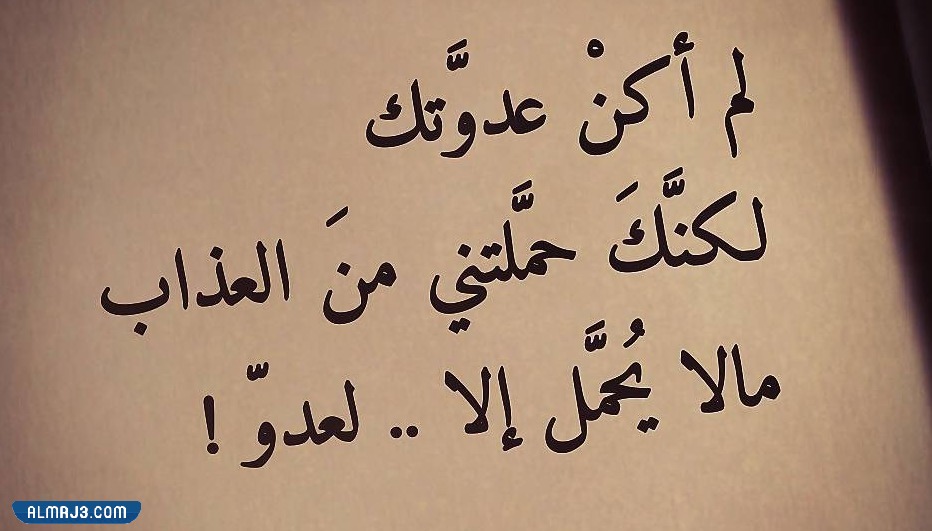 لم أكنْ عدوَّتك
لكنَّكَ حمَّلتني منَ العذاب
مالا يُحمَّل إلا .. لعدوّ !
ALMRJ3.COM